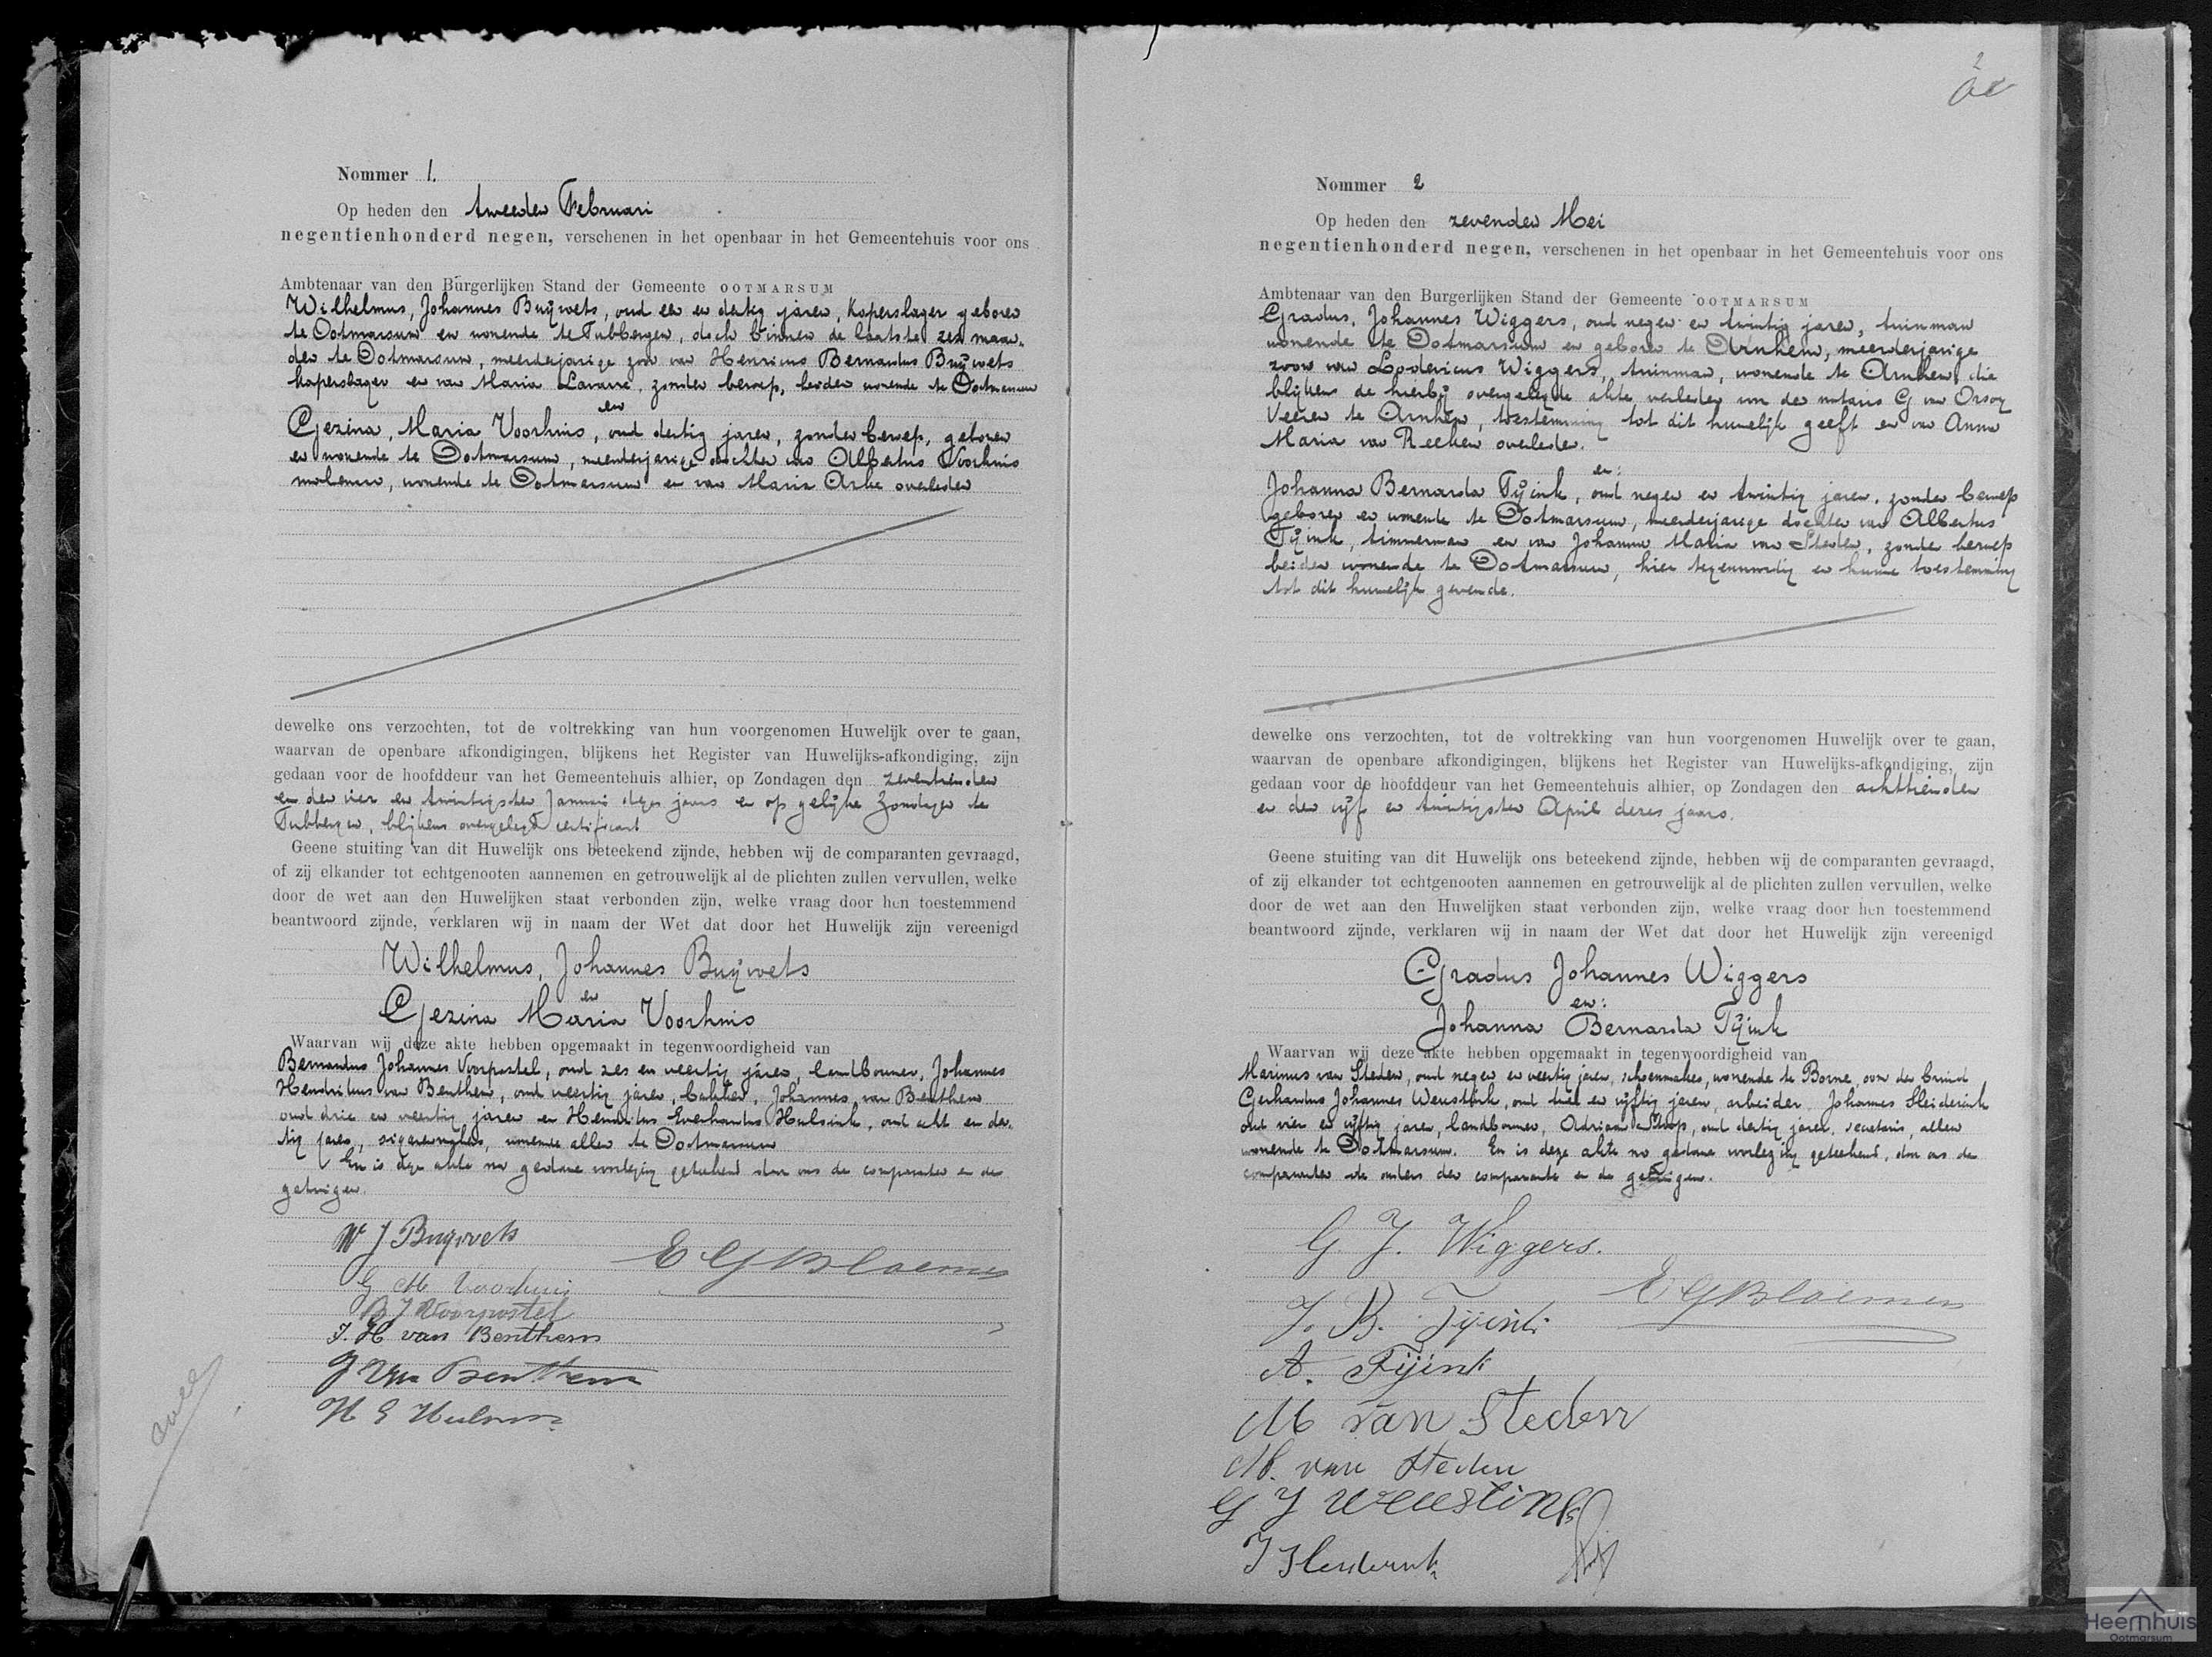 Nommer 1.
Op heden den tweeden Februari
negentienhonderd negen, verschenen in het openbaar in het Gemeentehuis voor ons
Ambtenaar van den Burgerlijken Stand der Gemeente OOTMARSUM
Wilhelmus, Johannes Buÿvets, oud een en dertig jaren, koperslager geboren
te Ootmarsum en wonende te Tubbergen, doch binnen de laatste zes maan-
den te Ootmarsum, meerderjarige zoon van Henricus Bernardus Buÿvets
koperslager en van Maria Lavarre, zonder beroep, beiden wonende te Ootmarsum
en
Gezina, Maria Voorhuis, oud dertig jaren, zonder beroep, geboren
en wonende te Ootmarsum, meerderjarige dochter van Albertus Voorhuis
molenaar, wonende te Ootmarsum en van Maria overleden
dewelke ons verzochten, tot de voltrekking van hun voorgenomen Huwelijk over te gaan,
waarvan de openbare afkondigingen, blijkens het Register van Huwelijks-afkondiging, zijn
gedaan voor de hoofddeur van het Gemeentehuis alhier, op Zondagen den zeventienden
en den vier en twintigsten Januari dezes jaars en op gelijke Zondagen te
Tubbergen, blijkens overgelegd certificaat
Geene stuiting van dit Huwelijk ons beteekend zijnde, hebben wij de comparanten gevraagd,
of zij elkander tot echtgenooten aannemen en getrouwelijk al de plichten zullen vervullen, welke
door de wet aan den Huwelijken staat verbonden zijn, welke vraag door hen toestemmend
beantwoord zijnde, verklaren wij in naam der Wet dat door het Huwelijk zijn vereenigd
Wilhelmus, Johannes Buÿvets
en
Gezina Maria Voorhuis
Waarvan wij deze akte hebben opgemaakt in tegenwoordigheid van
Bernardus Johannes Voorpostel, oud zes en veertig jaren, landbouwer, Johannes
Hendrikus van Benthem, oud veertig jaren, bakker, Johannes van Benthem
oud drie en veertig jaren en Hendrikus Everhardus Hulsink, oud acht en der-
tig jaren, sigarenmaker, wonende allen te Ootmarsum
En is deze akte na gedane voorlezing geteekend door ons de comparanten en de
getuigen.
W J Buyvets
E G Bloemen
G M Voorhuis
B J Voorpostel
J. H van Benthem
J Van Benthem
H E Hulsink
2
Nommer 2
Op heden den zevenden Mei
negentienhonderd negen, verschenen in het openbaar in het Gemeentehuis voor ons
Ambtenaar van den Burgerlijken Stand der Gemeente OOTMARSUM
Gradus, Johannes Wiggers, oud negen en twintig jaren, tuinman
wonende te Ootmarsum en geboren te Arnhem, meerderjarige
zoon van Lodevicus Wiggers, tuinman, wonende te Arnhem die
blijkens de hierbij overgelegde akte verleden voor den notaris G van Orsoy
Veeren te Arnhem, toestemming tot dit huwelijk geeft en van Anna
Maria van Reeken overleden.
en:
Johanna Bernarda Tÿink, oud negen en twintig jaren, zonder beroep
geboren en wonende te Ootmarsum, meerderjarige dochter van Albertus
Tÿink, timmerman en van Johanna Maria van Steden, zonder beroep
beiden wonende te Ootmarsum, hier tegenwoordig en hunne toestemming
tot dit huwelijk gevende.
dewelke ons verzochten, tot de voltrekking van hun voorgenomen Huwelijk over te gaan,
waarvan de openbare afkondigingen, blijkens het Register van Huwelijks-afkondiging, zijn
gedaan voor de hoofddeur van het Gemeentehuis alhier, op Zondagen den achttienden
en den vijf en twintigsten April dezes jaars.
Geene stuiting van dit Huwelijk ons beteekend zijnde, hebben wij de comparanten gevraagd,
of zij elkander tot echtgenooten aannemen en getrouwelijk al de plichten zullen vervullen, welke
door de wet aan den Huwelijken staat verbonden zijn, welke vraag door hen toestemmend
beantwoord zijnde, verklaren wij in naam der Wet dat door het Huwelijk zijn vereenigd
Gradus Johannes Wiggers
en:
Johanna Bernarda Tÿink
Waarvan wij deze akte hebben opgemaakt in tegenwoordigheid van
Marinus van Steden, oud negen en veertig jaren, schoenmaker, wonende te Borne, oom der bruid
Gerhardus Johannes Weustink, oud en vijftig jaren, arbeider, Johannes Sleiderink
oud vier en vijftig jaren, landbouwer, Adriaan Stoop, oud dertig jaren, secretaris, allen
wonende te Ootmarsum. En is deze akte na gedane voorlezing geteekend, door ons de
comparanten de ouders der comparante en de getuigen.
G. J. Wiggers.
E G Bloemen
J. B. Tÿink
A. Tijink
M van Steden
M. van Steden
G J Weustink
J Sleiderink
Heemhuis
Ootmarsum